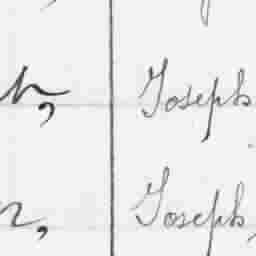 h, Joseph
n, Joseph